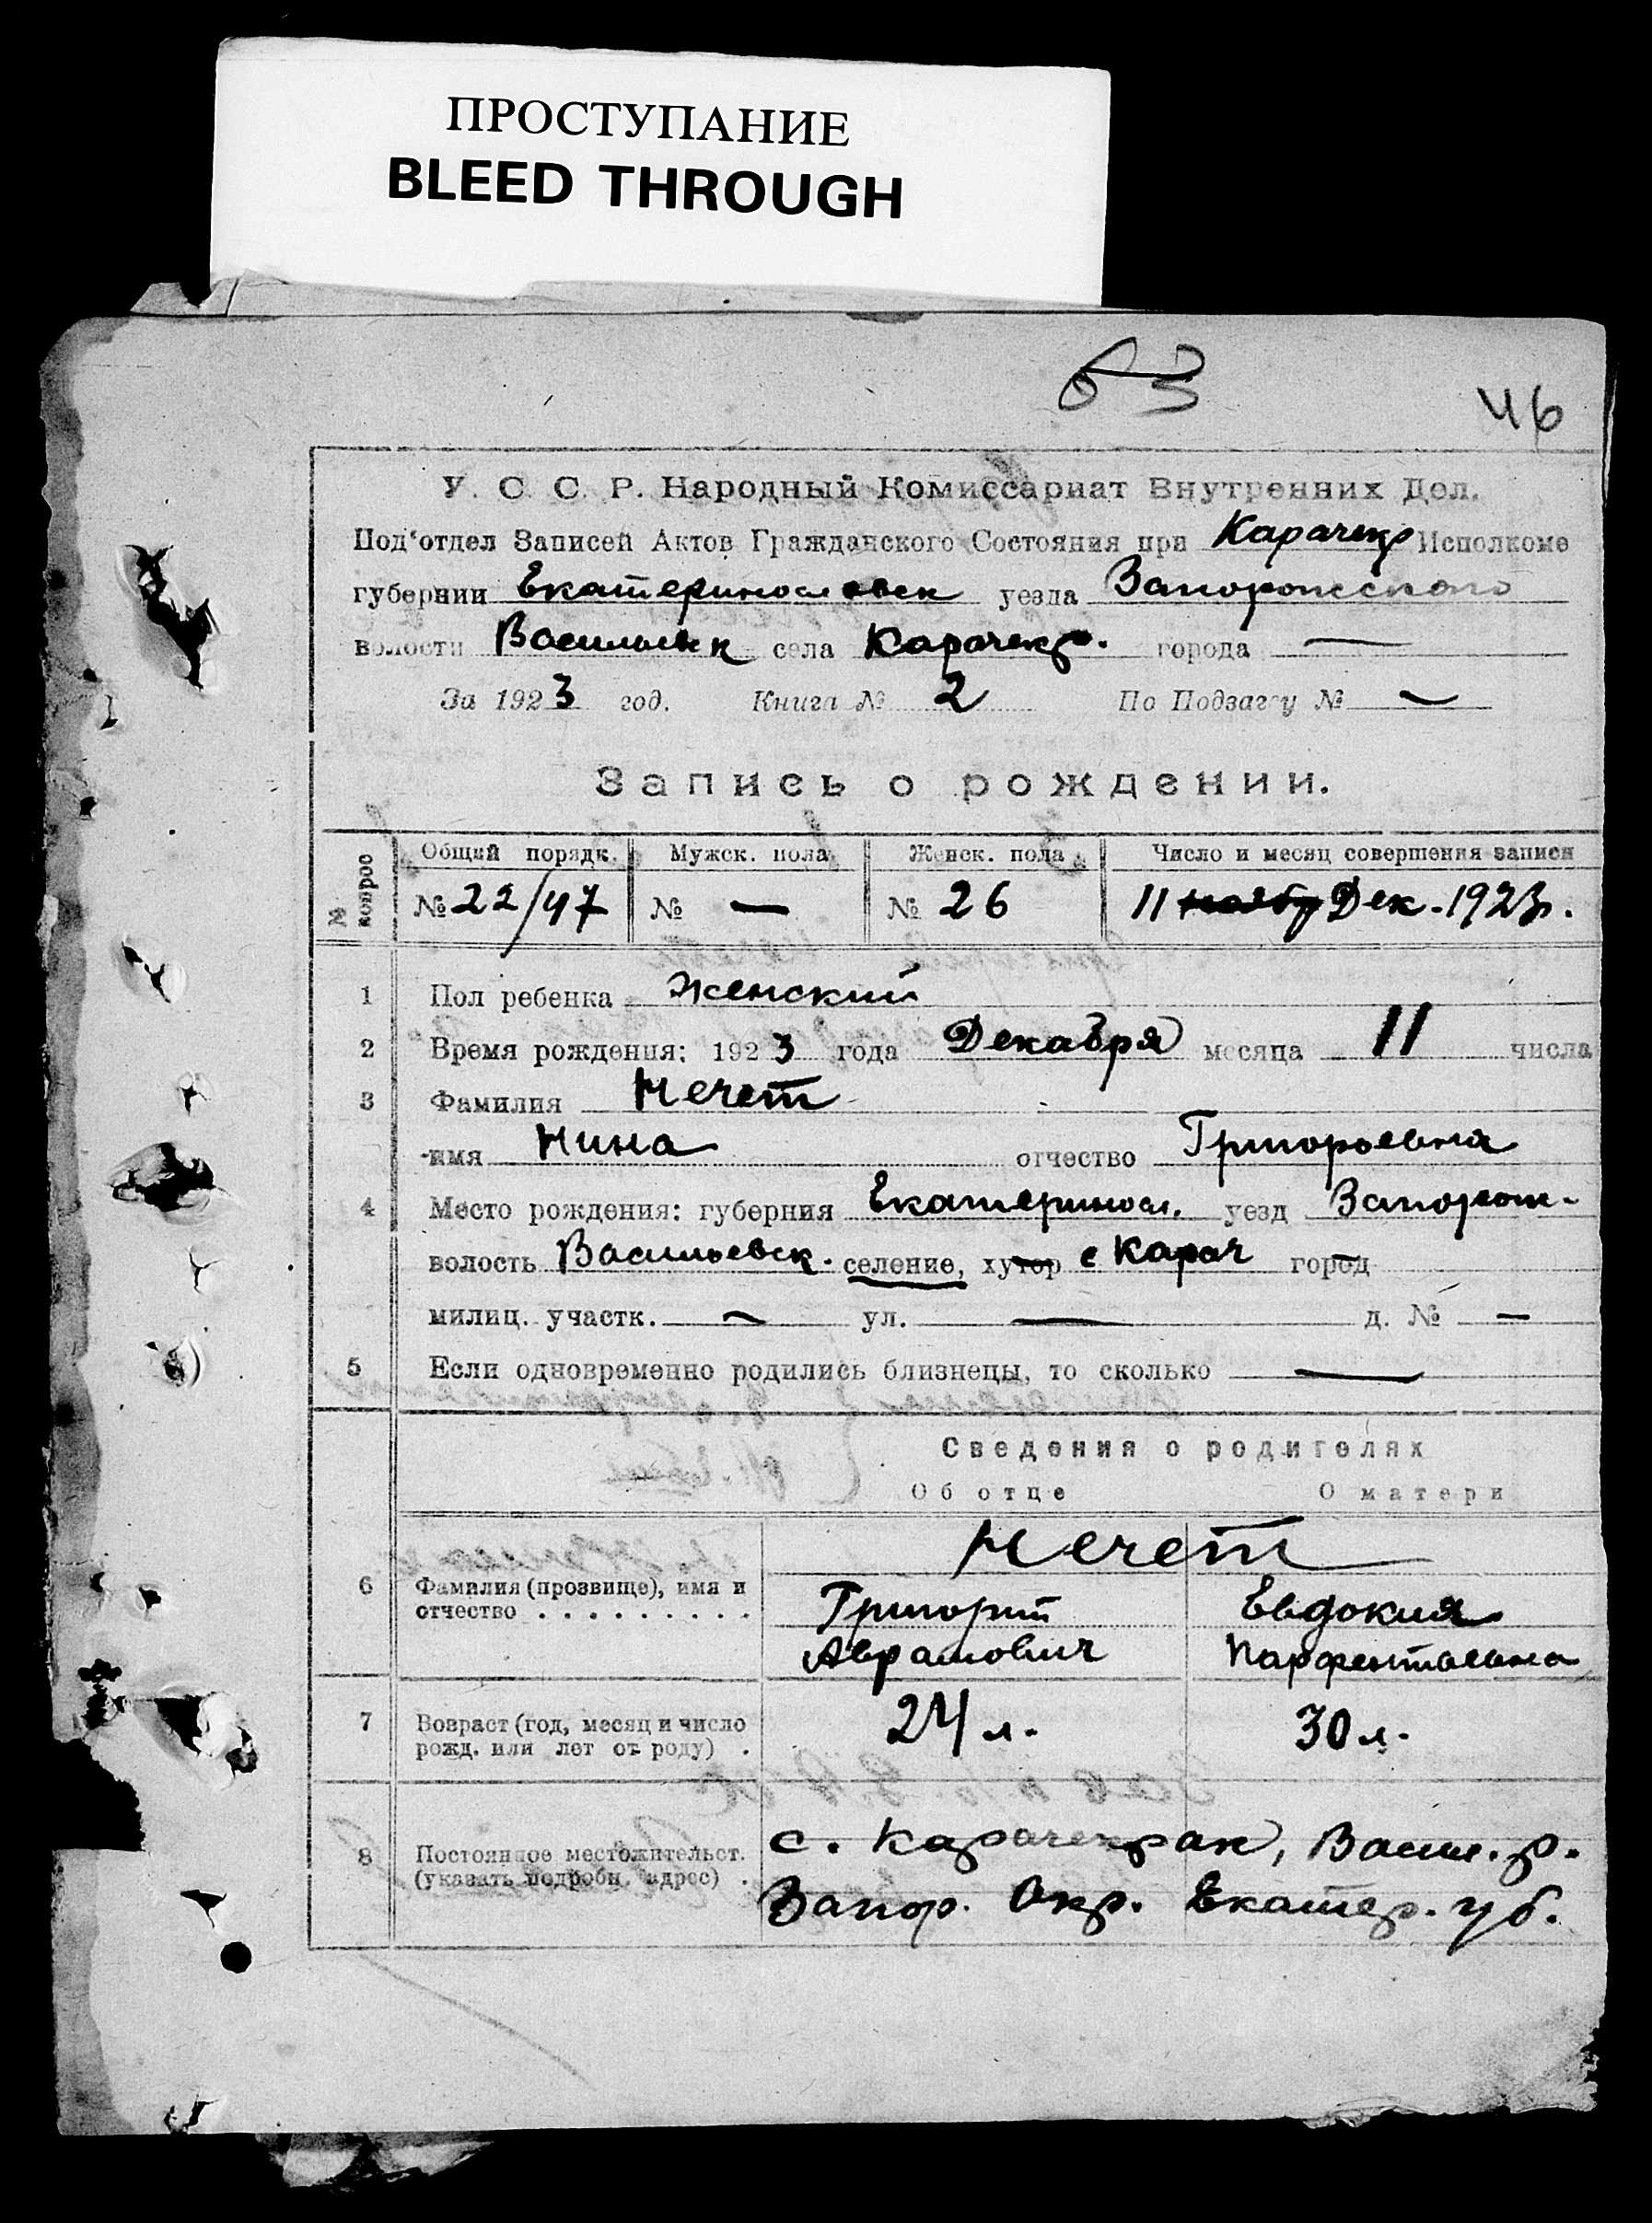 ПРОСТУПАНИЕ
BLEED THROUGH
63
46
У. С. С. Р. Народный Комиссариат Внутренних Дел.
Под'отдел Записей Актов Гражданского Состояния при Карачекр Исполкоме
губернии Екатеринославск уезда Запорожского
волости Васильевк села Карачекр. города —
За 1923 год. Книга № 2 По Подзагсу № —
Запись о рождении.
№ вопрос Общий порядк. Мужск. пола Женск. пола Число и месяц совершения записи
№ 22/47 № — № 26 11 ноябр Дек. 1923г.
1 Пол ребенка Женский
2 Время рождения: 1923 года Декабря месяца 11 числа
3 Фамилия Нечет
имя Нина отчество Григорьевна
4 Место рождения: губерния Екатериносл. уезд Запорож-
волость Васильевск. селение, хутор с Карач город
милиц. участк. — ул. — д. № —
5 Если одновременно родились близнецы, то сколько —
Сведения о родителях
Об отце О матери
Нечет
6 Фамилия (прозвище), имя и отчество . . . . . . . . . Григорий Евдокия
Аврамович Парфентьевна
7 Возраст (год, месяц и число рожд. или лет от роду) . 24 л. 30 л.
8 Постоянное местожительст. (указать подробн. адрес) . с. Карачекрак, Васил. р.
Запор. Окр. Екатер. губ.